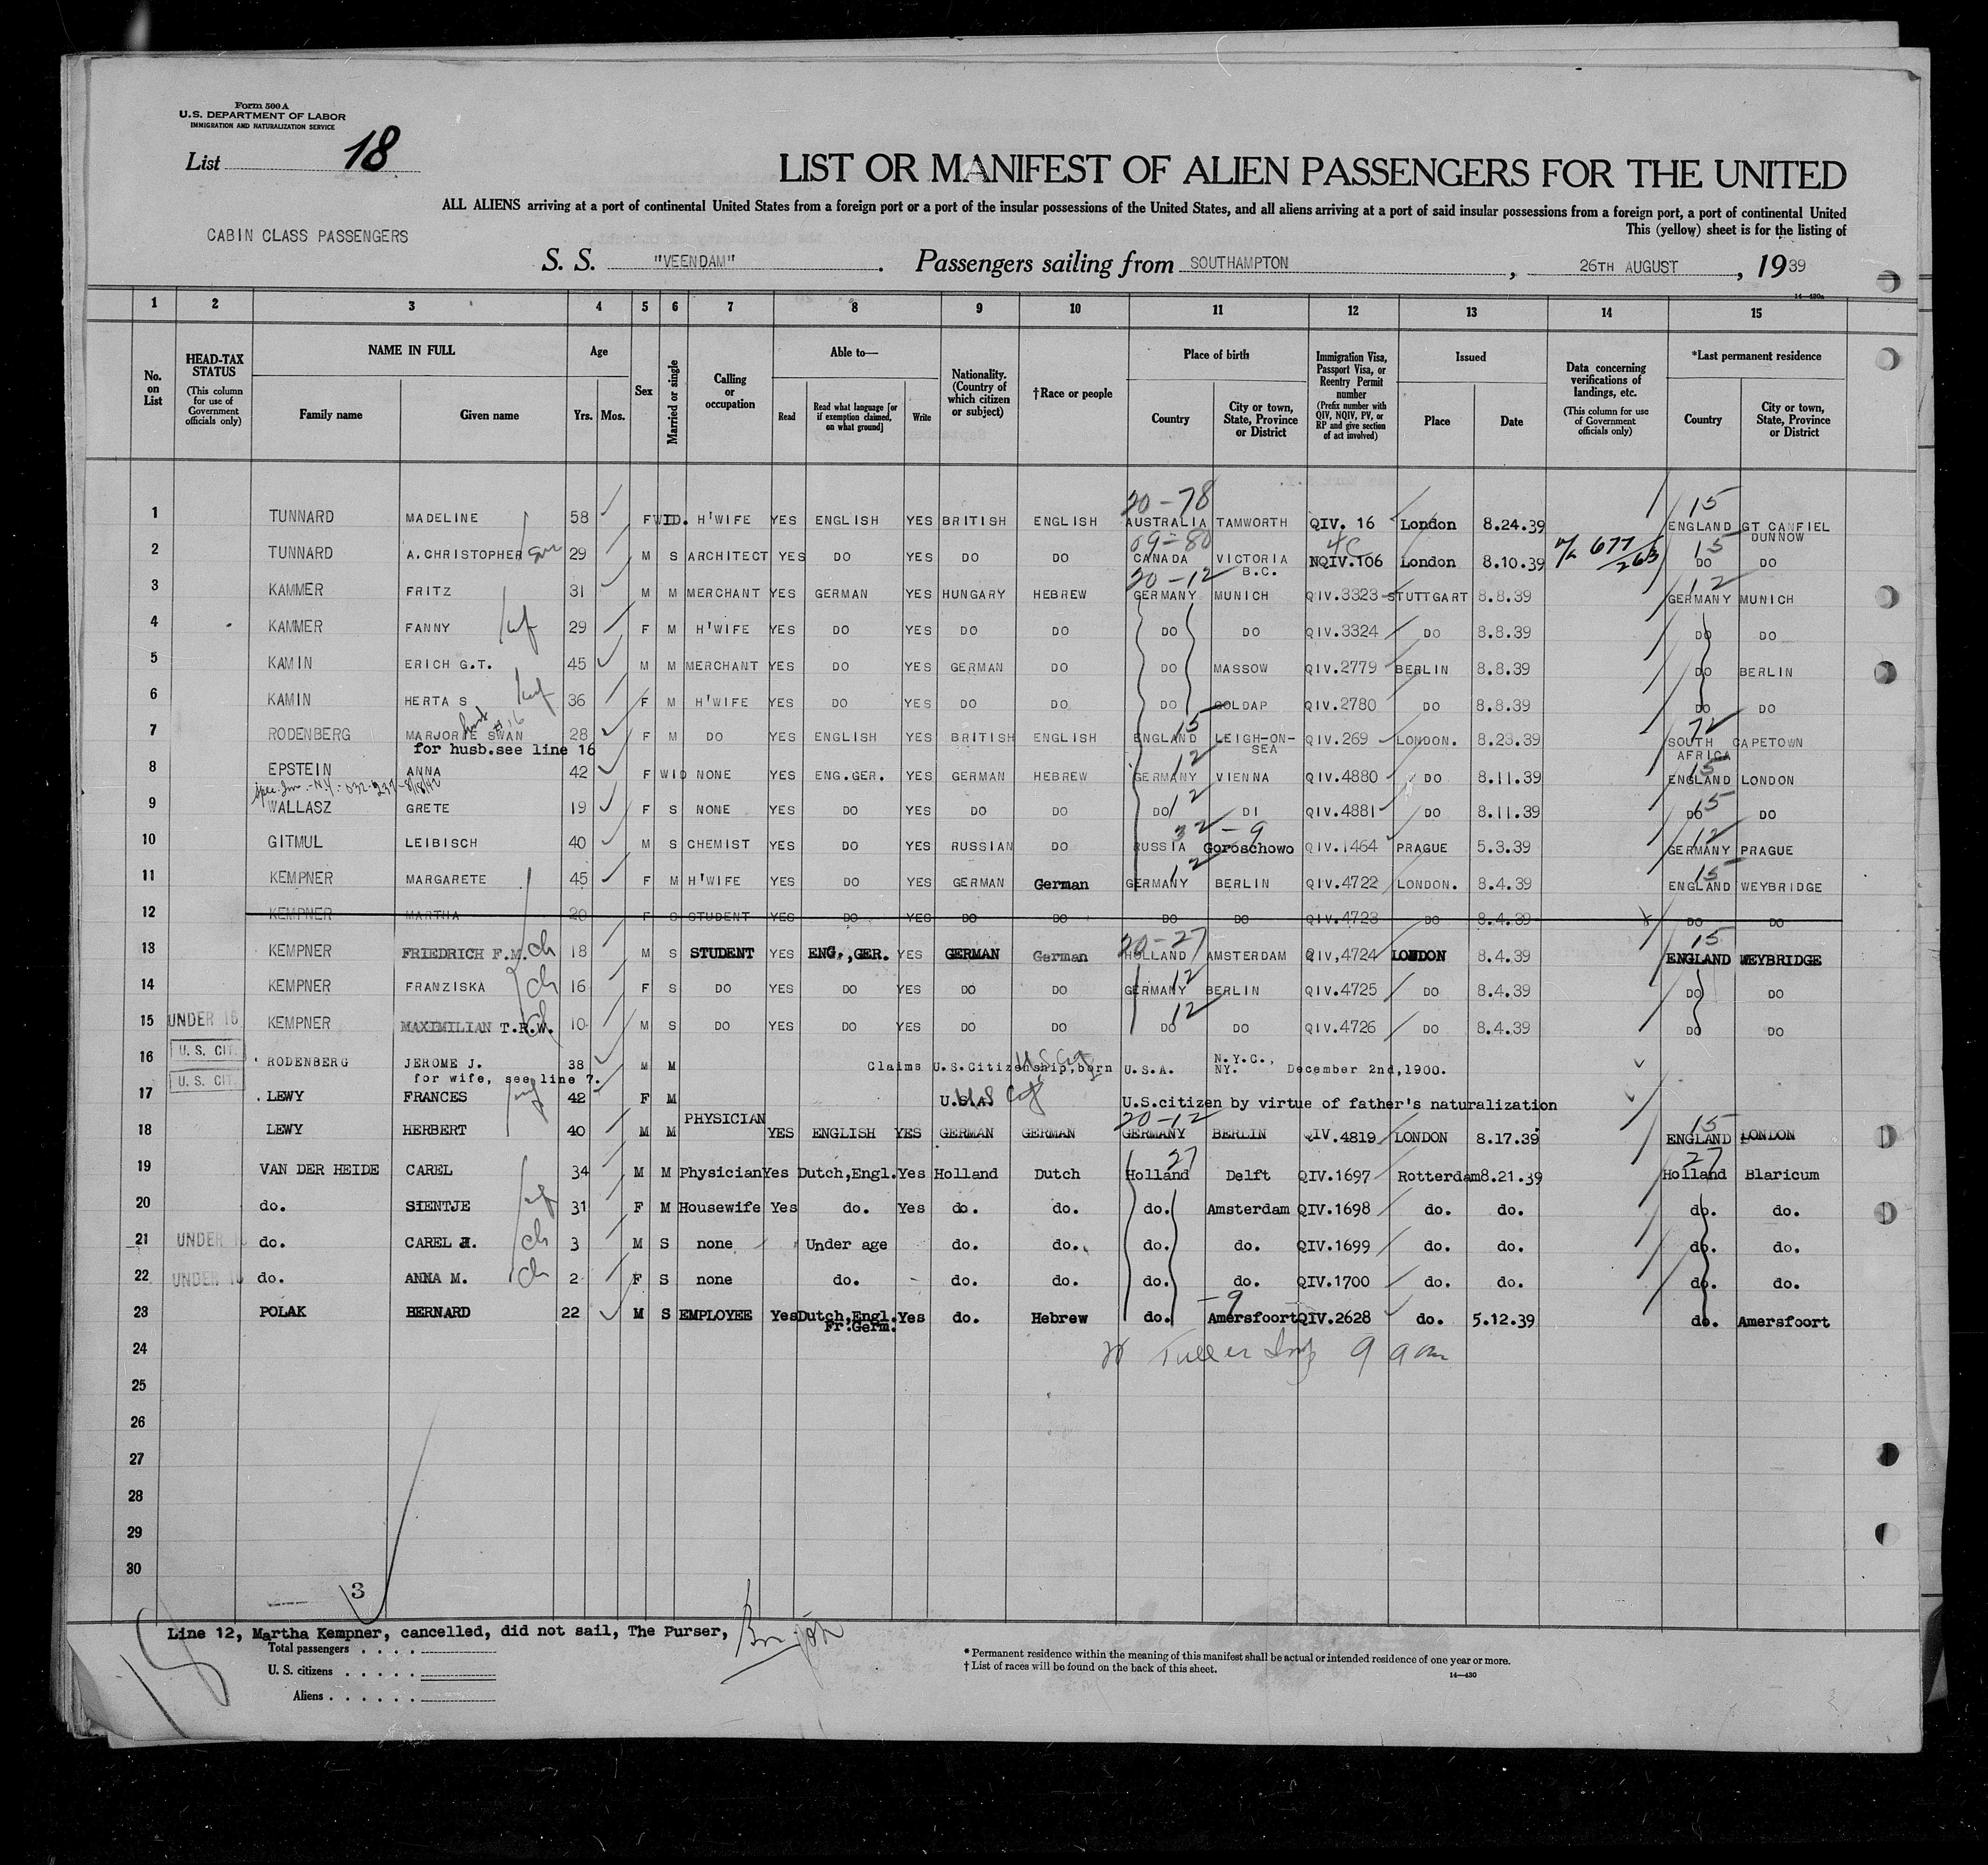 Form 500 A
U.S. DEPARTMENT OF LABOR
IMMIGRATION AND NATURALIZATION SERVICE
List 18
LIST OR MANIFEST OF ALIEN PASSENGERS FOR THE UNITED
ALL ALIENS arriving at a port of continental United States from a foreign port or a port of the insular possessions of the United States, and all aliens arriving at a port of said insular possessions from a foreign port, a port of continental United
This (yellow) sheet is for the listing of
CABIN CLASS PASSENGERS
S. S. "VEENDAM". Passengers sailing from SOUTHAMPTON, 26TH AUGUST, 1939
14-430a
1 2 3 4 5 6 7 8 9 10 11 12 13 14 15
No. on List
HEAD-TAX STATUS (This column for use of Government officials only)
NAME IN FULL Family name Given name
Age Yrs. Mos.
Sex
Married or single
Calling or occupation
Able to— Read Read what language [or if exemption claimed, on what ground] Write
Nationality. (Country of which citizen or subject)
†Race or people
Place of birth Country City or town, State, Province or District
Immigration Visa, Passport Visa, or Reentry Permit number (Prefix number with QIV, NQIV, PV, or RP and give section of act involved)
Issued Place Date
Data concerning verifications of landings, etc. (This column for use of Government officials only)
*Last permanent residence Country City or town, State, Province or District
20-78 15
1 TUNNARD MADELINE 58 F WID. H'WIFE YES ENGLISH YES BRITISH ENGLISH AUSTRALIA TAMWORTH QIV. 16 London 8.24.39 ENGLAND GT CANFIEL DUNNOW
09-80 4C 677/263 15
2 TUNNARD A.CHRISTOPHER 29 M S ARCHITECT YES DO YES DO DO CANADA VICTORIA B.C. NQIV.106 London 8.10.39 DO DO
20-12 12
3 KAMMER FRITZ 31 M M MERCHANT YES GERMAN YES HUNGARY HEBREW GERMANY MUNICH QIV.3323 STUTTGART 8.8.39 GERMANY MUNICH
4 KAMMER FANNY 29 F M H'WIFE YES DO YES DO DO DO DO QIV.3324 DO 8.8.39 DO DO
5 KAMIN ERICH G.T. 45 M M MERCHANT YES DO YES GERMAN DO DO MASSOW QIV.2779 BERLIN 8.8.39 DO BERLIN
6 KAMIN HERTA S 36 F M H'WIFE YES DO YES DO DO DO GOLDAP QIV.2780 DO 8.8.39 DO DO
15 72
7 RODENBERG MARJORIE SWAN 28 F M DO YES ENGLISH YES BRITISH ENGLISH ENGLAND LEIGH-ON-SEA QIV.269 LONDON. 8.23.39 SOUTH AFRICA CAPETOWN
for husb.see line 16
12 15
8 EPSTEIN ANNA 42 F WID NONE YES ENG.GER. YES GERMAN HEBREW GERMANY VIENNA QIV.4880 DO 8.11.39 ENGLAND LONDON
12 15
9 WALLASZ GRETE 19 F S NONE YES DO YES DO DO DO DI QIV.4881 DO 8.11.39 DO DO
32 -9 12
10 GITMUL LEIBISCH 40 M S CHEMIST YES DO YES RUSSIAN DO RUSSIA Goroschowo QIV.1464 PRAGUE 5.3.39 GERMANY PRAGUE
12 15
11 KEMPNER MARGARETE 45 F M H'WIFE YES DO YES GERMAN German GERMANY BERLIN QIV.4722 LONDON. 8.4.39 ENGLAND WEYBRIDGE
12 KEMPNER MARTHA 20 F S STUDENT YES DO YES DO DO DO DO QIV.4723 DO 8.4.39 DO DO
20-27 15
13 KEMPNER FRIEDRICH F.M. ch 18 M S STUDENT YES ENG.,GER. YES GERMAN German HOLLAND AMSTERDAM QIV,4724 LONDON 8.4.39 ENGLAND WEYBRIDGE
12
14 KEMPNER FRANZISKA ch 16 F S DO YES DO YES DO DO GERMANY BERLIN QIV.4725 DO 8.4.39 DO DO
12
15 UNDER 16 KEMPNER MAXIMILIAN T.R.W. ch 10 M S DO YES DO YES DO DO DO DO QIV.4726 DO 8.4.39 DO DO
16 U. S. CIT. RODENBERG JEROME J. 38 M M Claims U.S.Citizenship,born U.S.A. N.Y.C., NY. December 2nd,1900.
for wife, see line 7.
17 U. S. CIT. LEWY FRANCES 42 F M U.S.A. U.S.citizen by virtue of father's naturalization
20-12 15
18 LEWY HERBERT 40 M M PHYSICIAN YES ENGLISH YES GERMAN GERMAN GERMANY BERLIN QIV.4819 LONDON 8.17.39 ENGLAND LONDON
27 27
19 VAN DER HEIDE CAREL 34 M M Physician Yes Dutch,Engl. Yes Holland Dutch Holland Delft QIV.1697 Rotterdam 8.21.39 Holland Blaricum
20 do. SIENTJE 31 F M Housewife Yes do. Yes do. do. do. Amsterdam QIV.1698 do. do. do. do.
21 UNDER 16 do. CAREL H. ch 3 M S none Under age do. do. do. do. QIV.1699 do. do. do. do.
22 UNDER 16 do. ANNA M. ch 2 F S none do. - do. do. do. do. QIV.1700 do. do. do. do.
-9
23 POLAK BERNARD 22 M S EMPLOYEE Yes Dutch,Engl. Fr:Germ. Yes do. Hebrew do. Amersfoort QIV.2628 do. 5.12.39 do. Amersfoort
24
25
26
27
28
29
30
3
Line 12, Martha Kempner, cancelled, did not sail, The Purser,
Total passengers
U. S. citizens
Aliens
* Permanent residence within the meaning of this manifest shall be actual or intended residence of one year or more.
† List of races will be found on the back of this sheet.
14-430